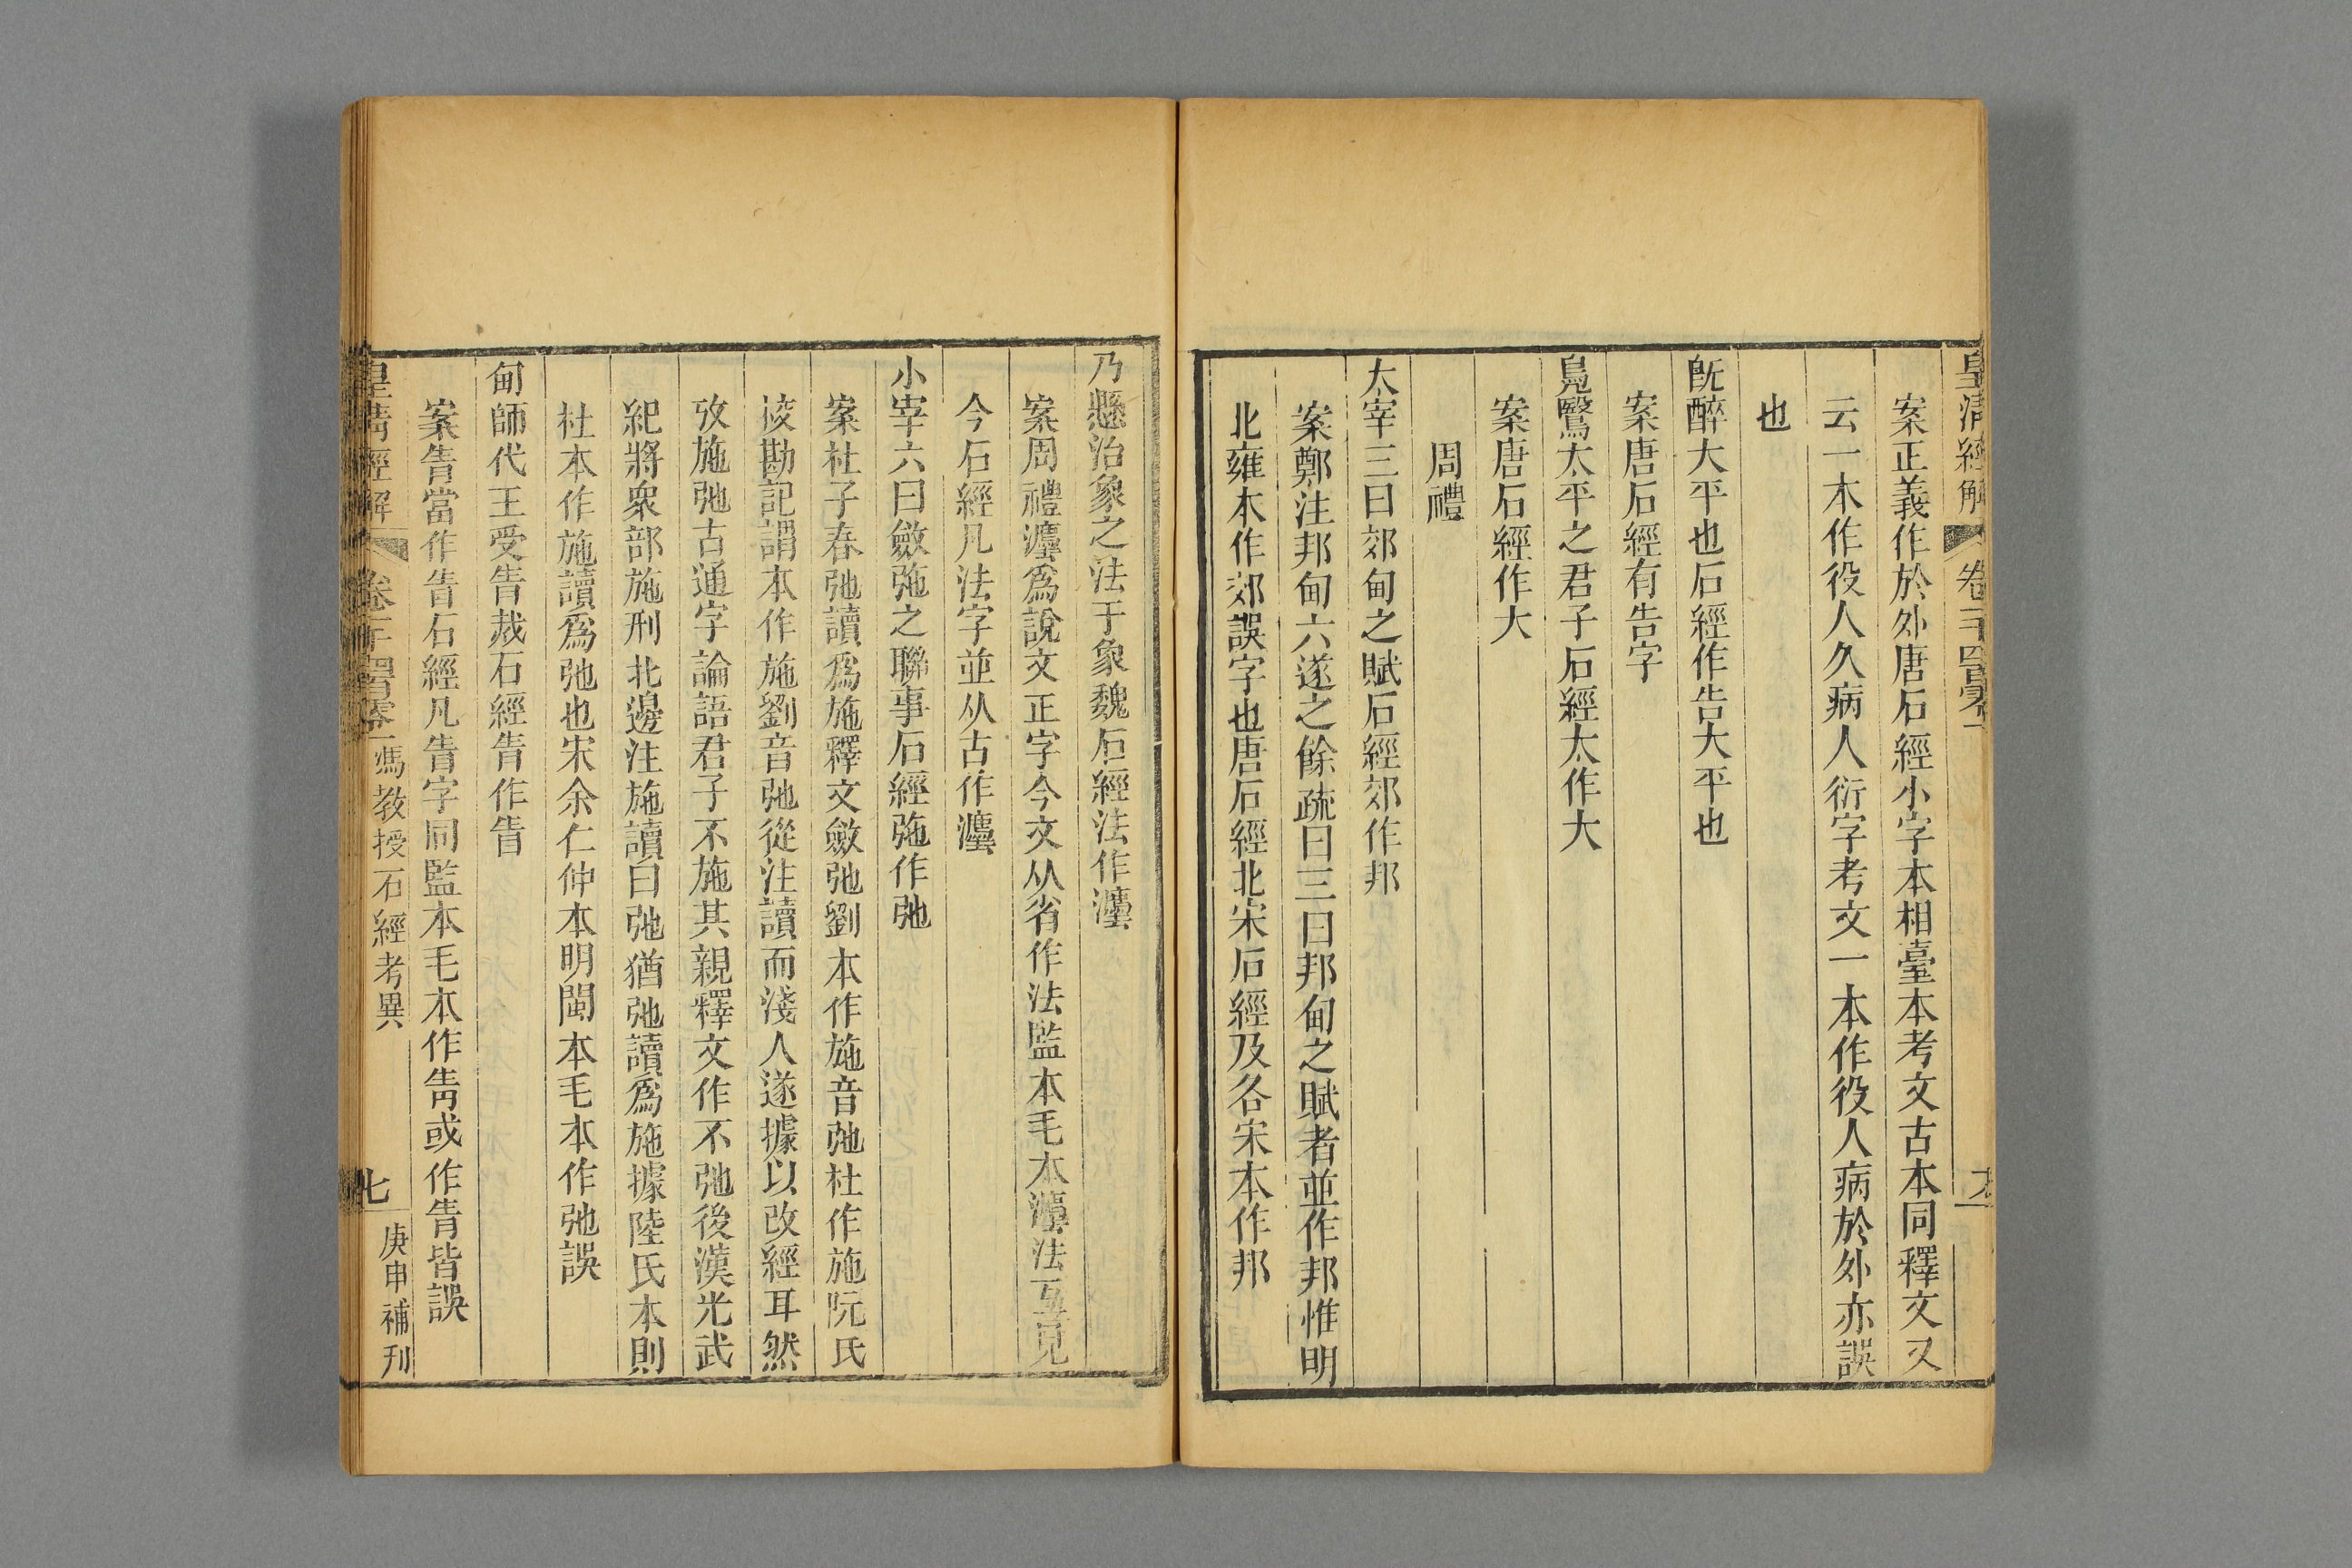 皇清經解 卷一千四百零一 六
案正義作於外唐石經小字本相臺本考文古本同釋文又
云一本作役人久病人衍字考文一本作役人病於外亦誤
也
旣醉大平也石經作告大平也
案唐石經有告字
鳧鷖太平之君子石經太作大
案唐石經作大
周禮
太宰三曰郊甸之賦石經郊作邦
案鄭注邦甸六遂之餘疏曰三曰邦甸之賦者並作邦惟明
北雍本作郊誤字也唐石經北宋石經及各宋本作邦
乃懸治象之法于象魏石經法作灋
案周禮灋爲說文正字今文从省作法監本毛本灋法互見
今石經凡法字並从古作灋
小宰六曰斂弛之聯事石經弛作弛
案杜子春弛讀爲施釋文斂弛劉本作施音弛杜作施阮氏
挍勘記謂本作施劉音弛從注讀而淺人遂據以改經耳然
攷施弛古通字論語君子不施其親釋文作不弛後漢光武
紀將衆部施刑北邊注施讀曰弛猶弛讀爲施據陸氏本則
杜本作施讀爲弛也宋余仁仲本明閩本毛本作弛誤
甸師代王受眚烖石經眚作眚
案眚當作眚石經凡眚字同監本毛本作眚或作眚皆誤
皇清經解 卷一千四百零一 馮教授石經考異 七 庚申補刊